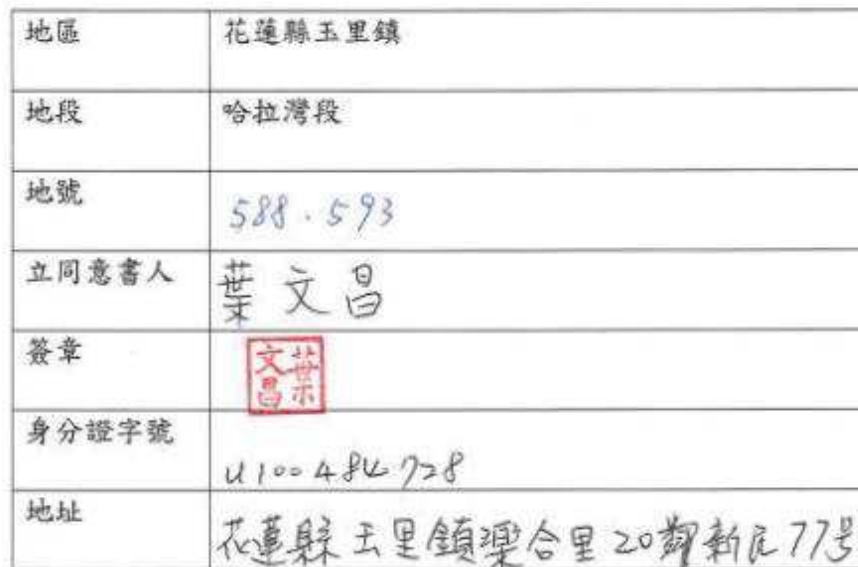 地區 花蓮縣玉里鎮
地段 哈拉灣段
地號 588.593
立同意書人 葉文昌
簽章 葉文昌
身分證字號 U100484728
地址 花蓮縣玉里鎮樂合里20鄰新民77号